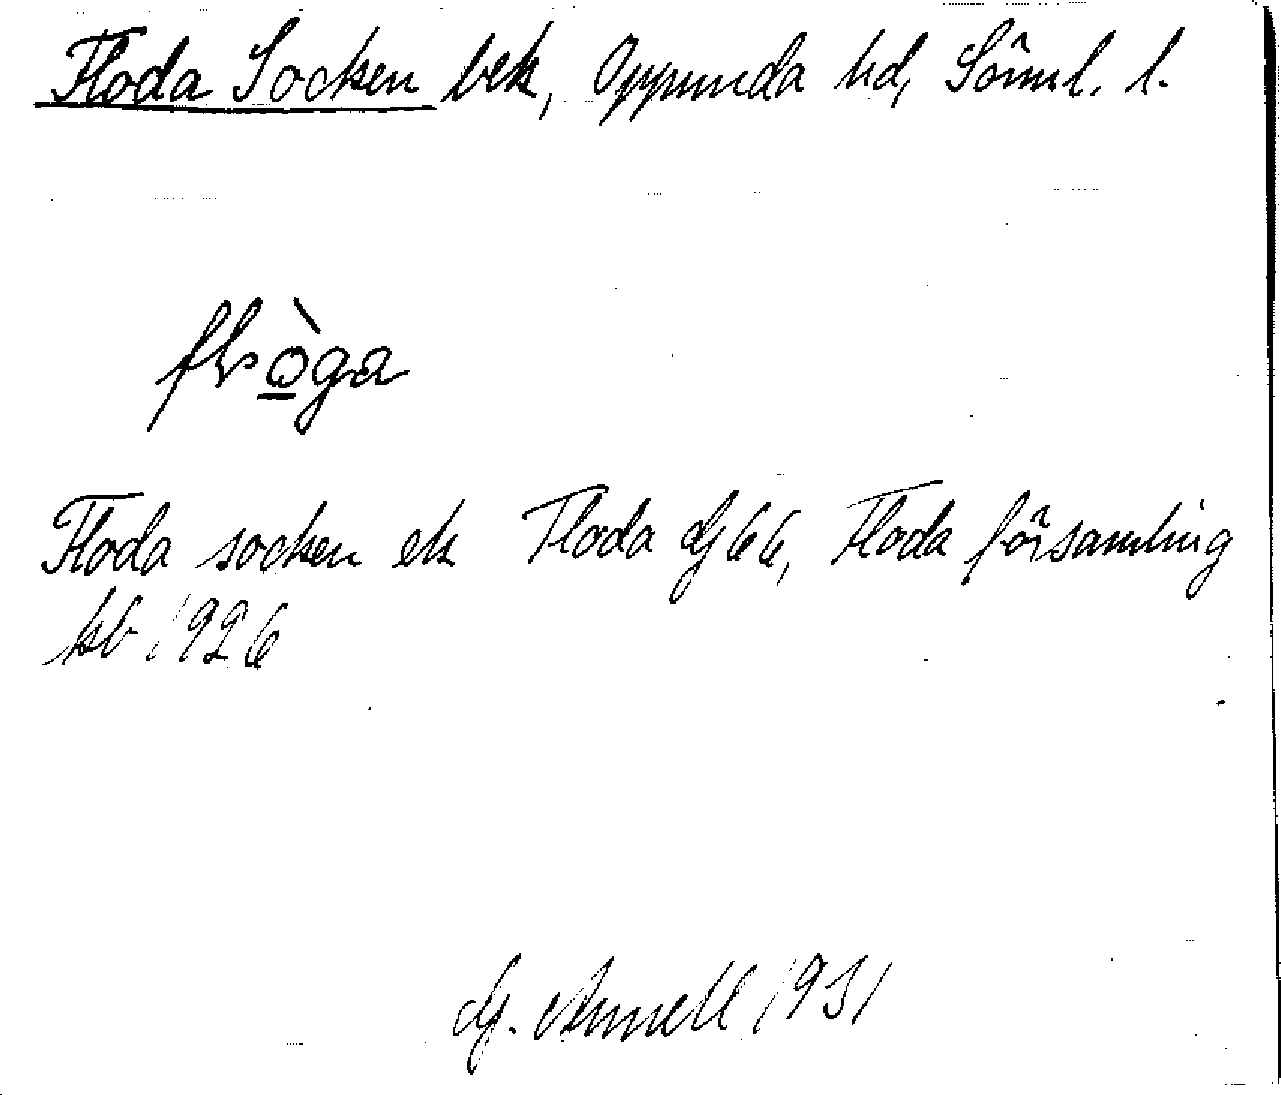 Floda Socken bek, Oppunda hd, Söml. l.
fròga
Floda socken ek Floda Gj 66, Floda församling
kb 1926
Hj. Annell 1931